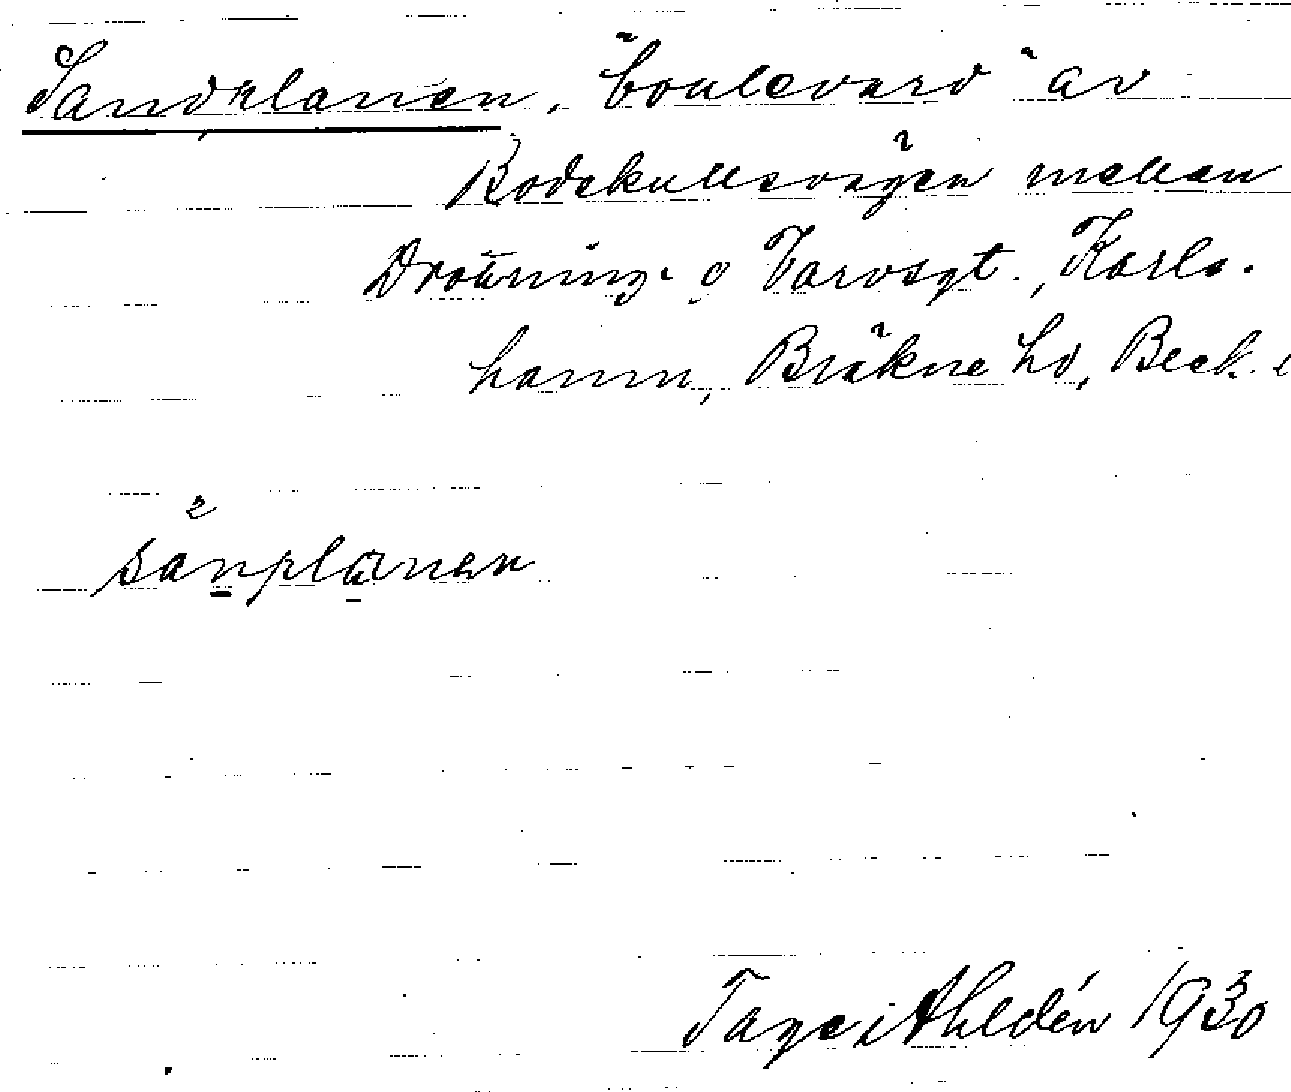 Sandplanen, "boulevard" av
Rodekullsvägen mellan
Drottning- o Varvsgt., Karls-
hamn, Bräkne hd, Bleck.
sanplanen
Tage Ahldén 1930